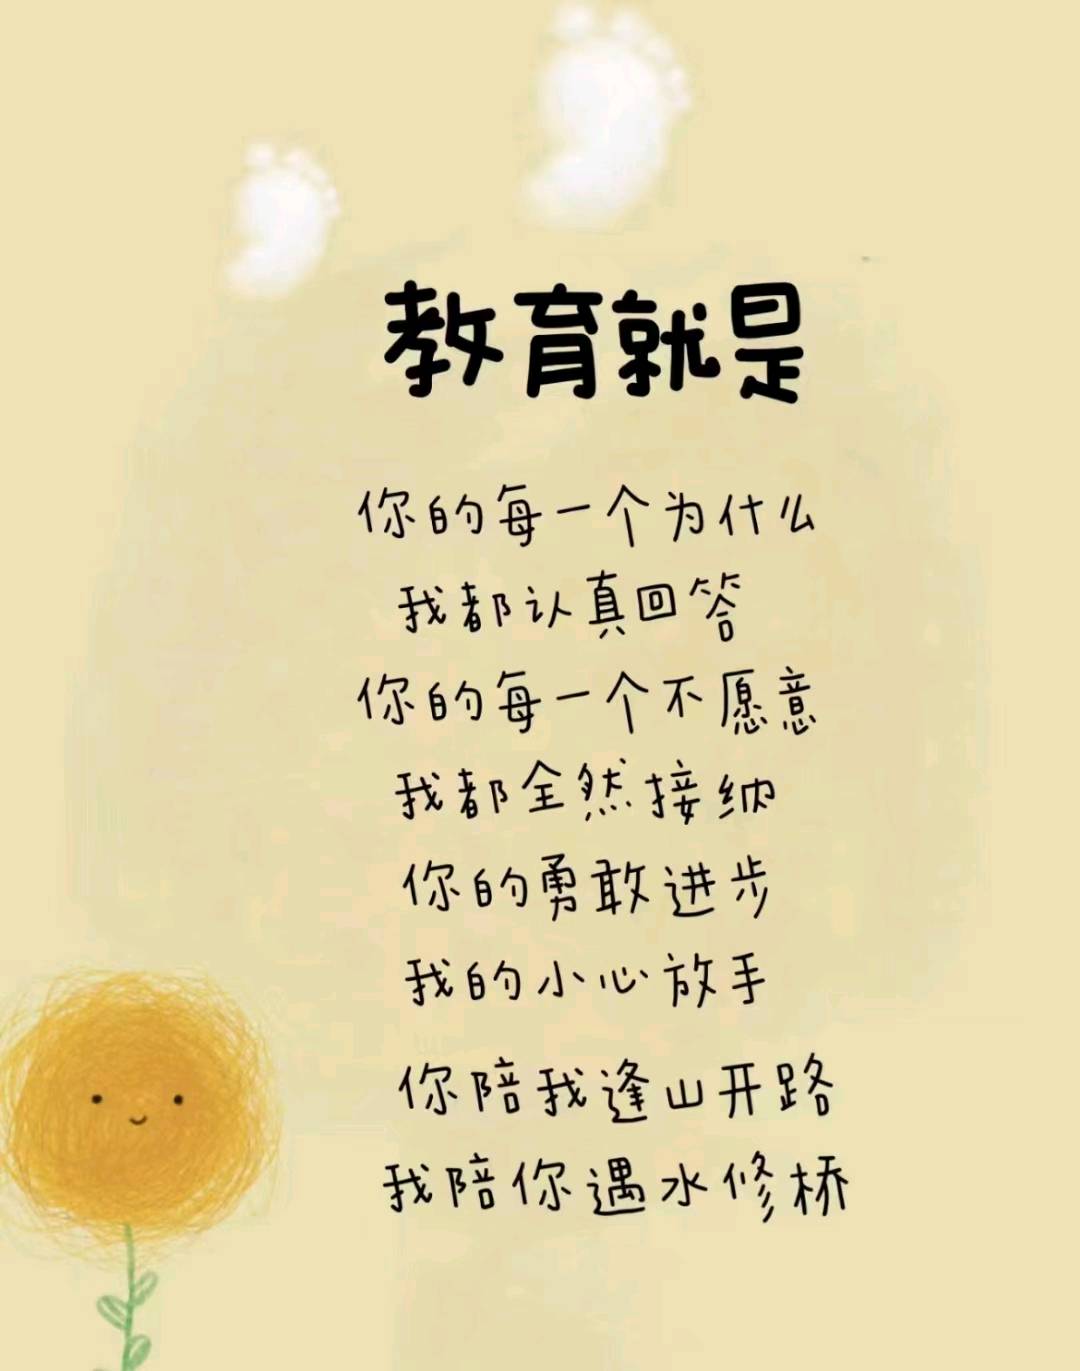 教育就是
你的每一个为什么
我都认真回答
你的每一个不愿意
我都全然接纳
你的勇敢进步
我的小心放手
你陪我逢山开路
我陪你遇水修桥